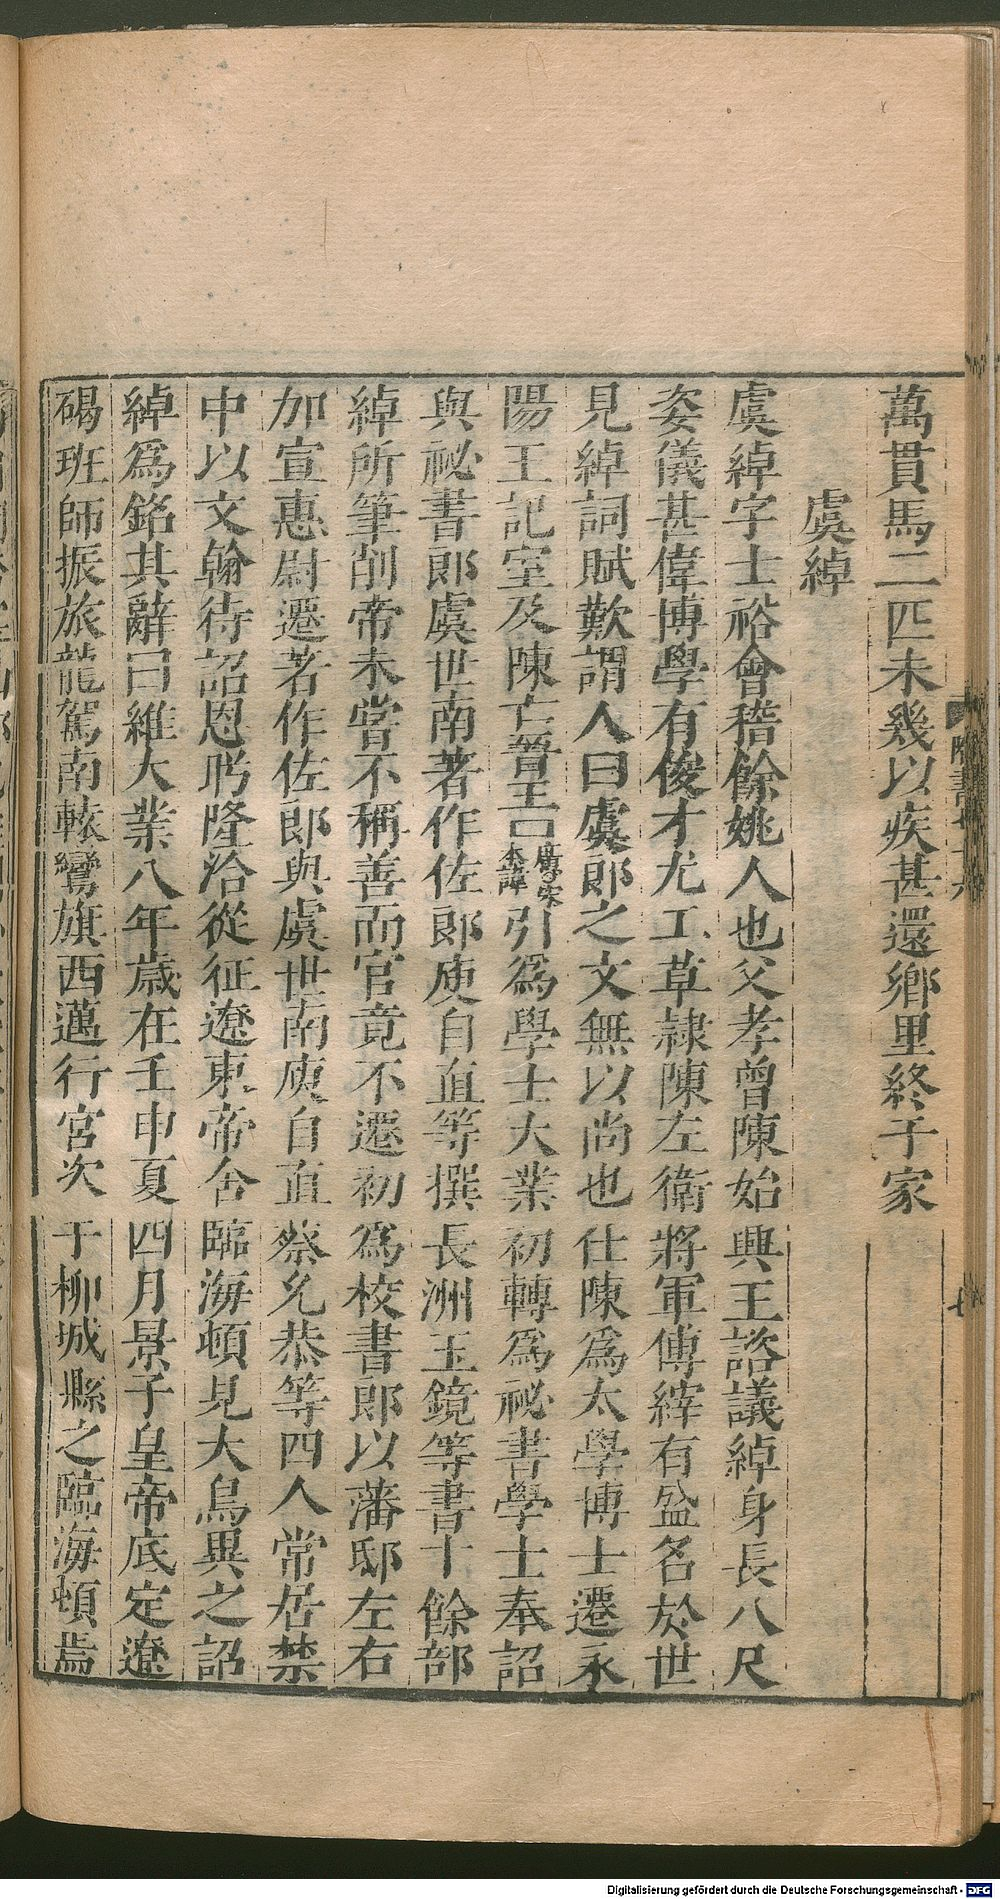 萬貫馬二匹未幾以疾甚還鄉里終于家
虞綽
虞綽字士裕會稽餘姚人也父孝曾陳始興王諮議綽身長八尺
姿儀甚偉博學有俊才尤工草隸陳左衛將軍傅縡有盛名於世
見綽詞賦歎謂人曰虞郎之文無以尚也仕陳為太學博士遷永
陽王記室及陳亡晉王引為學士大業初轉為祕書學士奉詔
與祕書郎虞世南著作佐郎庾自直等撰長洲玉鏡等書十餘部
綽所筆削帝未嘗不稱善而官竟不遷初為校書郎以藩邸左右
加宣惠尉遷著作佐郎與虞世南庾自直蔡允恭等四人常居禁
中以文翰待詔恩盻隆洽從征遼東帝舍臨海頓見大鳥異之詔
綽爲銘其辭曰維大業八年歲在壬申夏四月景子皇帝底定遼
碣班師振旅龍駕南轅鸞旗西邁行宮次于柳城縣之臨海頓焉
Digitalisierung gefördert durch die Deutsche Forschungsgemeinschaft - DFG